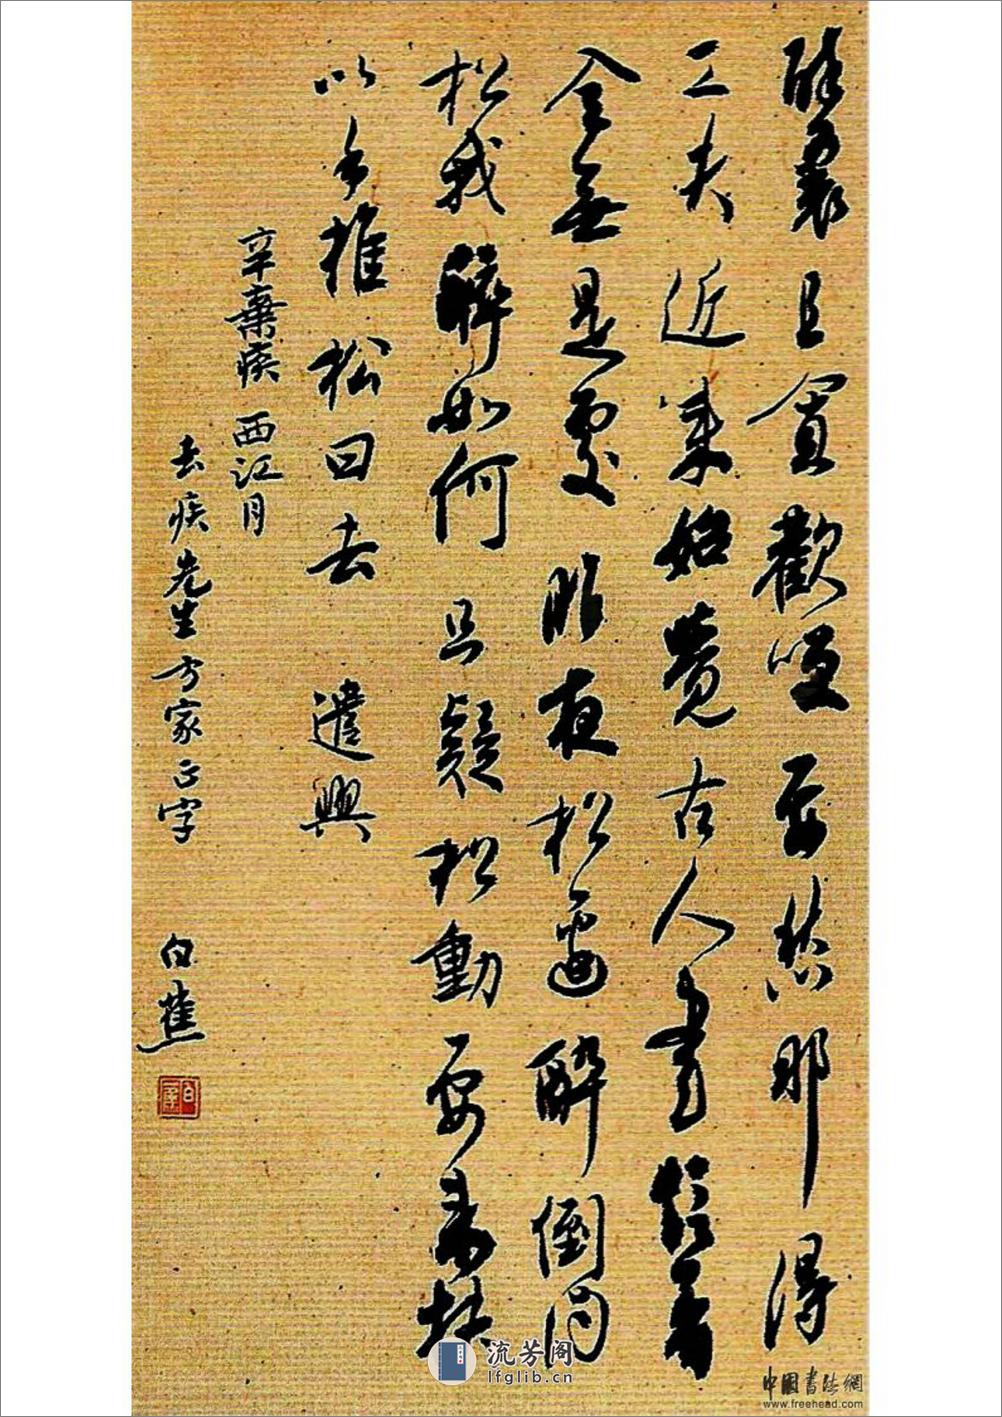 醉裏且貪歡咲要愁那得
工夫近來始覺古人書信着
全無是處昨夜松邊醉倒問
松我醉如何只疑松動要來扶
以手推松曰去 遣興
辛棄疾 西江月
去疾先生方家正字 白蕉
白蕉
流芳阁
lfglib.cn
中國書法網
www.freehead.com